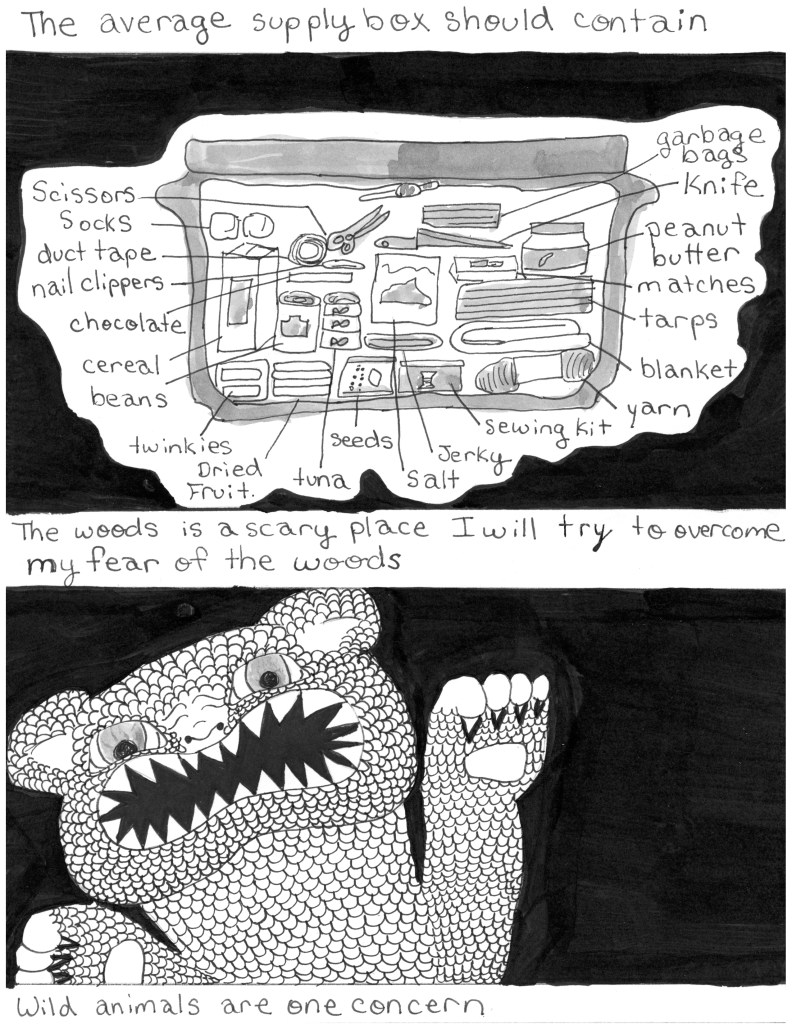 The average supply box should contain
garbage
bags
Scissors
Knife
Socks
peanut
butter
duct tape
nail clippers
matches
chocolate
tarps
cereal
blanket
beans
yarn
twinkies
seeds
sewing kit
Dried
Fruit.
Jerky
tuna
Salt
The woods is a scary place I will try to overcome
my fear of the woods
Wild animals are one concern